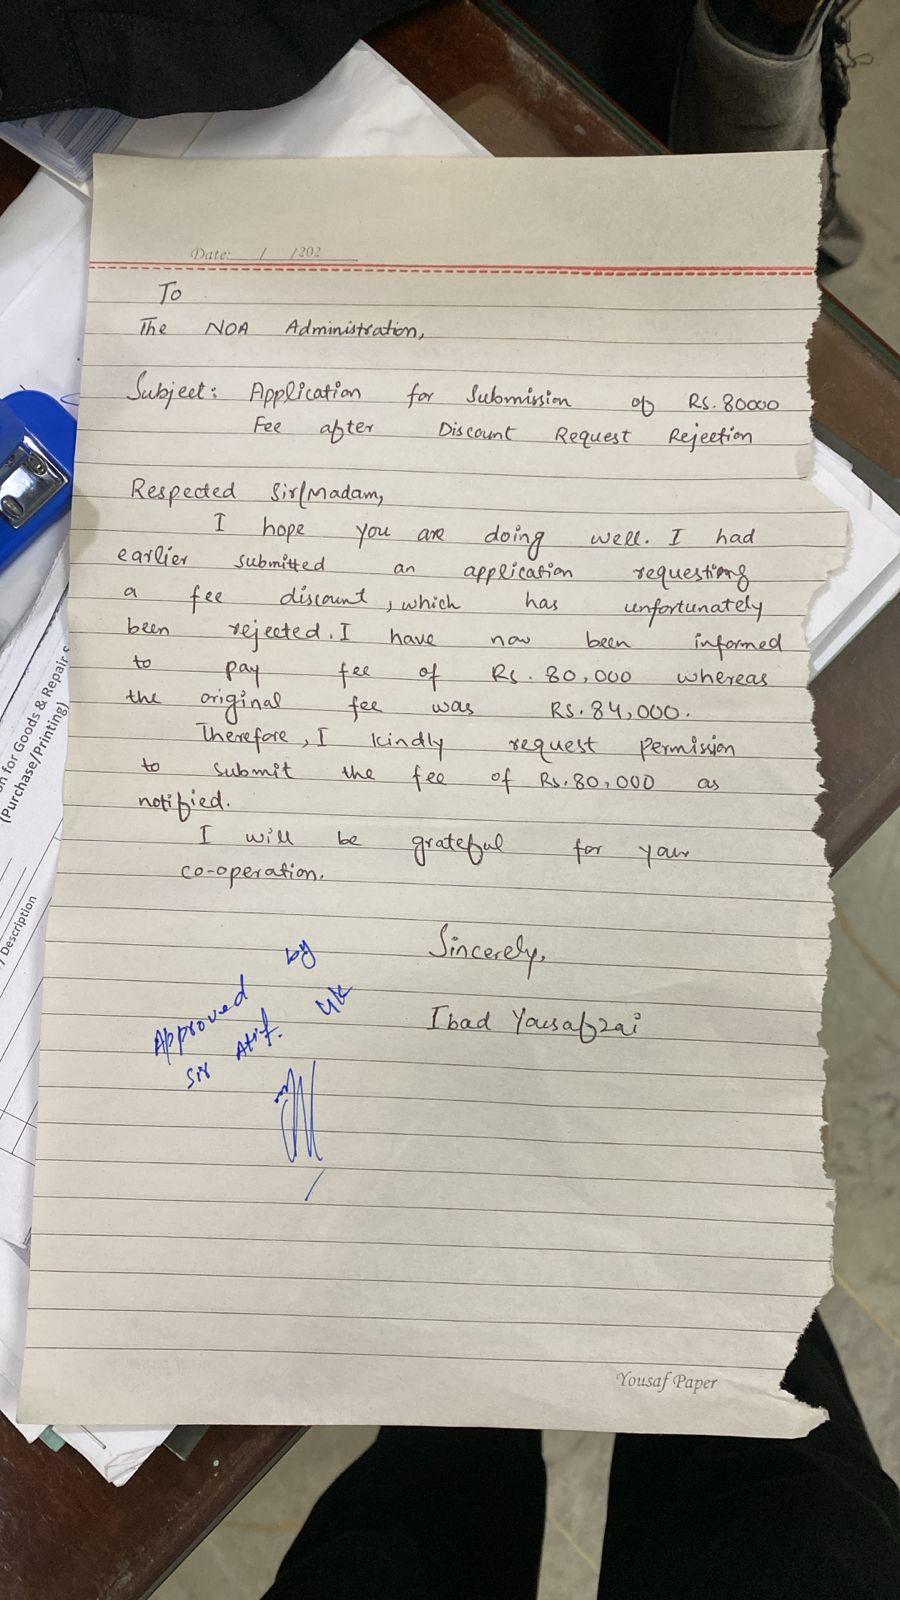 Date: / /202
To
The NOA Administration,
Subject: Application for Submission of Rs. 80000
Fee after Discount Request Rejection
Respected Sir/Madam,
I hope you are doing well. I had
earlier submitted an application requesting
a fee discount, which has unfortunately
been rejected. I have now been informed
to pay fee of Rs. 80,000 whereas
the original fee was Rs. 84,000.
Therefore, I kindly request permission
to submit the fee of Rs. 80,000 as
notified.
I will be grateful for your
co-operation.
Sincerely,
Ibad Yousafzai
Approved by
Sir Atif.
Yousaf Paper
n for Goods & Repair S
(Purchase/Printing)
Description